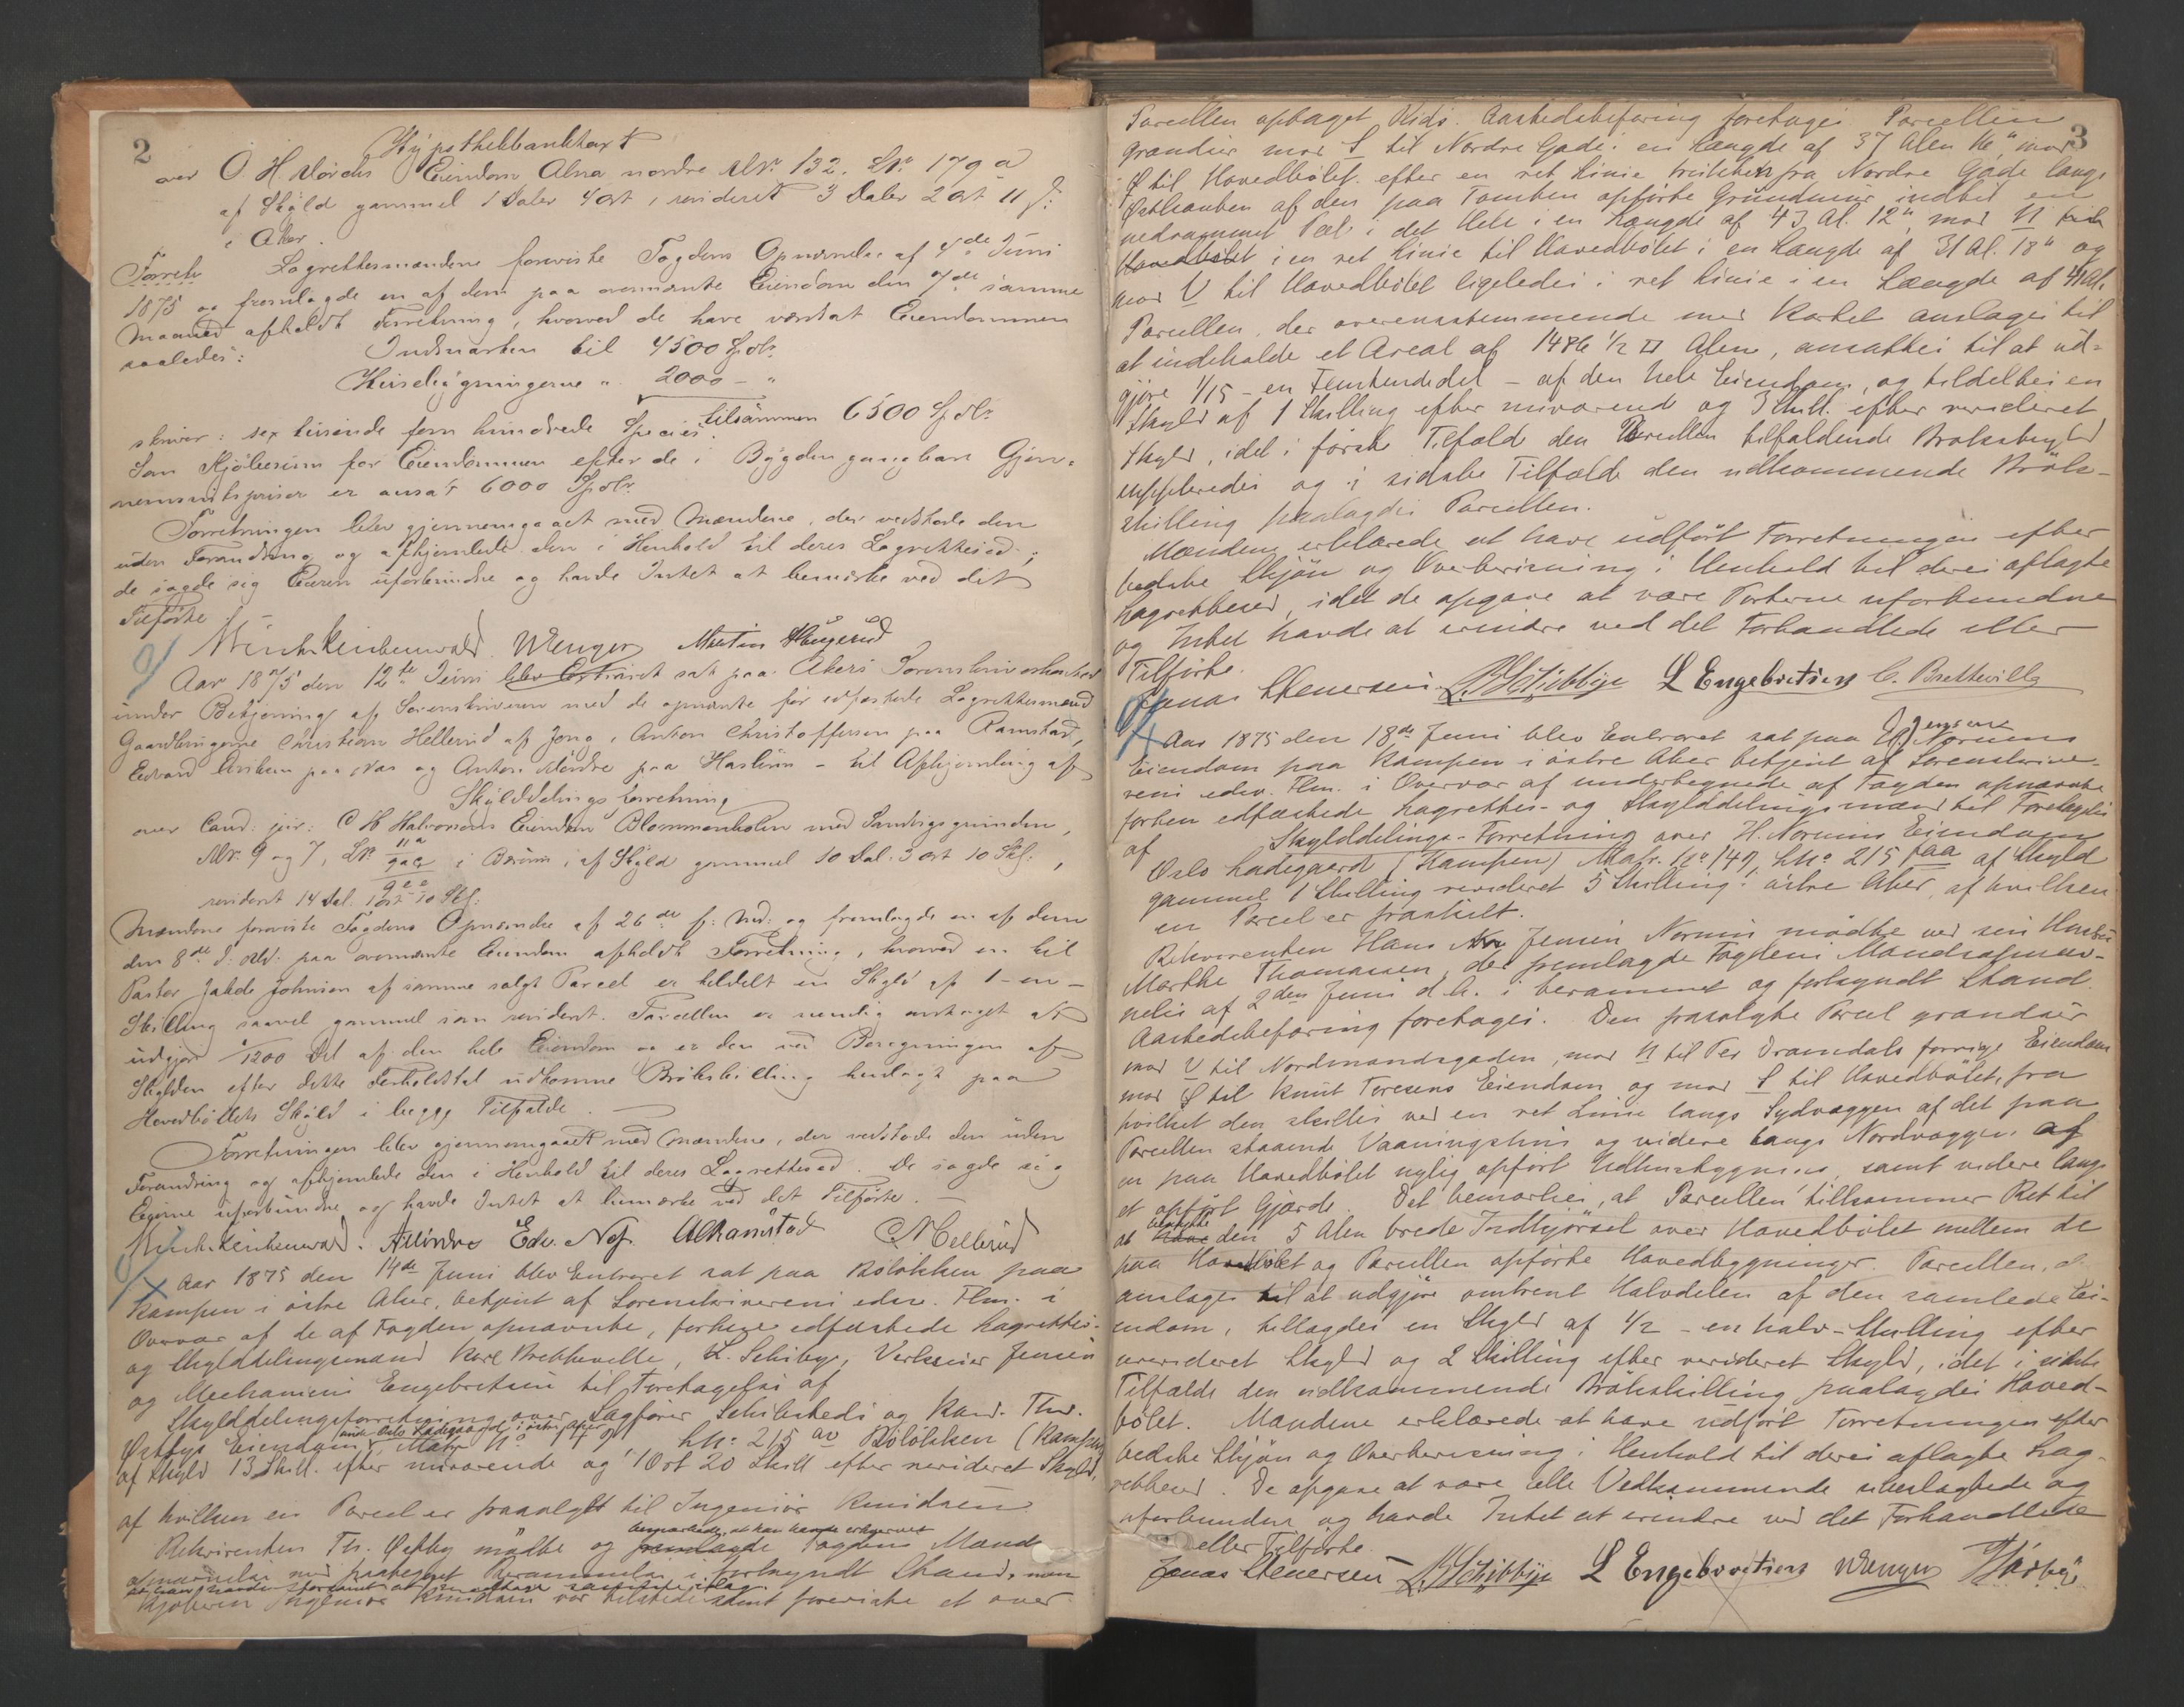 2
Hypothekbanktaxt
over O. H. Eiendom Alna nordre MNr. 132. LNo 179a
af Skyld gammel 1 Daler 4 ort, revideret 3 Daler 2 ort 11 ſ:
i Aker.
Lagrettesmændene foreviste Fogdens Opnævnelse af 4de Juni
1875 og fremlagde en af dem paa ovennævnte Eiendom den 7de samme
Maaned afholdt Forretning, hvorved de have værdsat Eiendommen
saaledes:
Indmarken til 4500 Spdlr
Husebygningerne " 2000 - "
tilsammen 6500 Spdlr
skriver: sex tusinde fem hundrede Species.
Som Kjøbesum for Eiendommen efter de i Bygden gangbare Gjen-
nemsnitspriser er ansat 6000 Spdlr.
Forretningen blev gjennemgaaet med Mændene, der vedtode den
uden Forandring og afhjemlede den i Henhold til deres Lagretteed;
de sagde sig Eieren uforbundne og havde Intet at bemærke ved det
Tilførte.
Wenger Martin Haugerud
Aar 1875 den 12te Juni blev Extraret sat paa Akers Sorenskriverkontor
under Betjening af Sorenskriveren med de opnævnte før edfæstede Lagrettesmænd
Gaardbrugerne Christian Hellerud af Jong, Anton Christoffersen paa Ramstad,
Edvard paa Næs og Anton paa Haslum - til Afhjemling af
Skylddelingsforretning
over Cand. jur. C H Halvorsens Eiendom Blommenholm med Sandvigsgrunden,
MNr. 9 og 7, LNo 11a 9ae i Bærum, af Skyld gammel 10 Dal. 3 ort 10 Skl.,
revideret 14 Dal. 1 ort 10 Skl:
Mændene foreviste Fogdens Opnævnelse af 26de f: Md: og fremlagde en af dem
den 8de d: Md: paa ovennævnte Eiendom afholdt Forretning, hvorved en til
Pastor Johnson af samme solgt Parcel er tildelt en Skyld af 1 - en -
Skilling saavel gammel som revideret. Parcellen er nemlig antaget at
udgjøre 1/1200 Del af den hele Eiendom og er den ved Beregningen af
Skylden efter dette Forholdstal udkomne Brøkskilling henlagt paa
Hovedbøllets Skyld i begge Tilfælde.
Forretningen blev gjennemgaaet med Mændene, der vedtode den uden
Forandring og afhjemlede den i Henhold til deres Lagretteed. De sagde sig
Eierne uforbundne og havde Intet at bemærke ved det Tilførte.
Edv. Næs AChRamstad CHellerud
Aar 1875 den 14de Juni blev Extraret sat paa Bøløkken paa
Kampen i østre Aker, betjent af Sorenskriverens edsv. Fllm. i
Overvær af de af Fogden opnævnte, forhen edfæstede Lagrettes-
og Skylddelingsmænd Karl Brettevelle, L. Schibye, Værkseier Jensen
og Mechanicus Engebretsen til Foretagelse af
Skylddelingsforretning over Sagfører Schibsteds og Kand. Theol.
Østbys Eiendom under Oslo Ladegaard i østre Aker, Matr. No 149 LNo 215 av Bøløkken (Kampen)
af Skyld 13 Skill. efter nuværende og 1 Ort 20 Skill efter revideret Skyld,
af hvilken en Parcel er frasolgt til Ingeniør Knudsen
Rekvirenten Th. Østby mødte og fremlagde bemærkede, at han havde erhvervet Fogdens Mands-
opnævnelse med paategnet Berammelse i forkyndt Stand, men
at han havde forsømt at medtage samme idag.
Kjøberen Ingeniør Knudsen var tilstede samt foreviste et over
3
Parcellen optaget Kids. Aastedsbefaring foretoges. Parcellen
grændser mod S til Nordre Gade i en Længde af 37 Alen 16" mod
Ø til Hovedbølet efter en ret Linie trukken fra Nordre Gade langs
Østkanten af den paa Tomten opførte Grundmur indtil en
nedrammet Pæl i det Hele i en Længde af 43 Al. 12", mod N til
Hovedbølet i en ret Linie til Hovedbølet i en Længde af 31 Al. 18" og
mod V til Hovedbølet ligeledes i ret Linie i en Længde af 41 Al.
Parcellen, der overensstemmende med Kartet ansloges til
at indeholde et Areal af 1486 1/2 □ Alen, ansattes til at ud-
gjøre 1/15 - en Femtendedel - af den hele Eiendom, og tildeltes en
Skyld af 1 Skilling efter nuværende og 3 Skill. efter revideret
Skyld, idet i første Tilfælde den Parcellen tilfaldende Brøkskyld
suppleredes og i sidste Tilfælde den udkommende Brøk-
skilling paalagdes Parcellen.
Mændene erklærede at have udført Forretningen efter
bedste Skjøn og Overbevisning i Henhold til deres aflagte
Lagretteseed, idet de opgave at være Parterne uforbundne
og Intet havde at erindre ved det Forhandlede eller
Tilførte.
Jonas Stenersen LSchibbye L Engebretsen C. Brettevilla
Aar 1875 den 18de Juni blev Extraret sat paa H. Jensens Normens
Eiendom paa Kampen i østre Aker betjent af Sorenskrive-
rens edsv. Fllm. i Overvær af undertegnede af Fogden opnævnte
forhen edfæstede Lagrettes- og Skylddelingsmænd til Foretagelse
af Skylddelings-Forretning over H. Normens Eiendom
Oslo Ladegaard (Kampen) Matr. No 149, LNo 215 faa af Skyld
gammel 1 Skilling revideret 5 Skilling i østre Aker, af hvilken
en Parcel er fraskilt.
Rekvirenten Hans Jensen Normen mødte ved sin Hustru
Marthe Thomassen, der fremlagde Fogdens Mandsopnæv-
nelse af 2den Juni d. A. i berammet og forkyndt Stand.
Aastedsbefaring foretoges. Den frasolgte Parcel grændser
mod V til Nordmandsgaden, mod N til Per Dramdals forrige Eiendom
mod Ø til Knut Toresens Eiendom og mod S til Hovedbølet, fra
hvilket den skilles ved en ret Linie langs Sydvæggen af det paa
Parcellen staaende Vaaningshus og videre langs Nordvæggen af
en paa Hovedbølet nylig opført Udhusbygning, samt videre langs
et opført Gjærde. Det bemærkes, at Parcellen tilkommer Ret til
at benytte den 5 Alen brede Indkjørsel over Hovedbølet mellem de
paa Hovedbølet og Parcellen opførte Hovedbygninger. Parcellen, 
ansloges til at udgjøre omtrent Halvdelen af den samlede Ei-
endom, tillagdes en Skyld af 1/2 - en halv - Skilling efter
urevideret Skyld og 2 Skilling efter revideret Skyld, idet i sidste
Tilfælde den udkommende Brøkskilling paalagdes Hoved-
bølet. Mændene erklærede at have udført Forretningen efter
bedste Skjøn og Overbevisning i Henhold til deres aflagte Lag-
retteseed. De opgave at være alle Vedkommende ubeslægtede og
uforbundne og havde Intet at erindre ved det Forhandlede
eller Tilførte.
Jonas Stenersen LSchibbye L Engebretsen Wenger